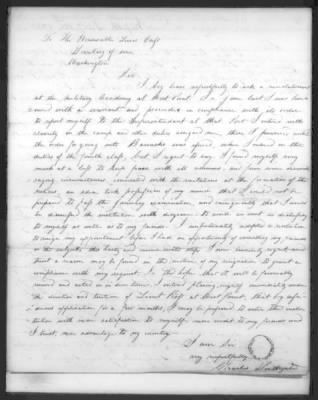 To The Honorable Lewis Cass
Secretary of war
Washington
Sir
I beg leave respectfully to ask a reinstatement
at the Military Academy at West Point. In June last I was hon-
ored with a warrant and proceeded in compliance with its order
to report myself to the Superintendent at that Post I entered with
alacrity on the camp and other duties assigned me, there I
the order for going into Barracks was
duties of the fourth class, but I regret to say I found myself very
much at a loss to keep pace with its
circumstances connected with the
an idea took possession of my mind that I could not be
prepared to pass the January examination, and consequently that I would
be dismissed the institution with disgrace to
to myself as well as to my friends. I unfortunately adopted a resolution
to resign my appointment before I had an opportunity of consulting my friends
on the subject, this hasty and
that a reason may be found in the nature of my resignation to grant a
compliance with my request. In the hope that it will be favorably
and acted on in due time. I intend placing myself immediately under
the direction and tuition of Lieut Ross at West Point, that by
application for a few months, I may be prepared to enter the insti-
tution with more satisfaction to myself, more credit to my friends and
I trust, more advantage to my country
I am Sir
very respectfully
Charles